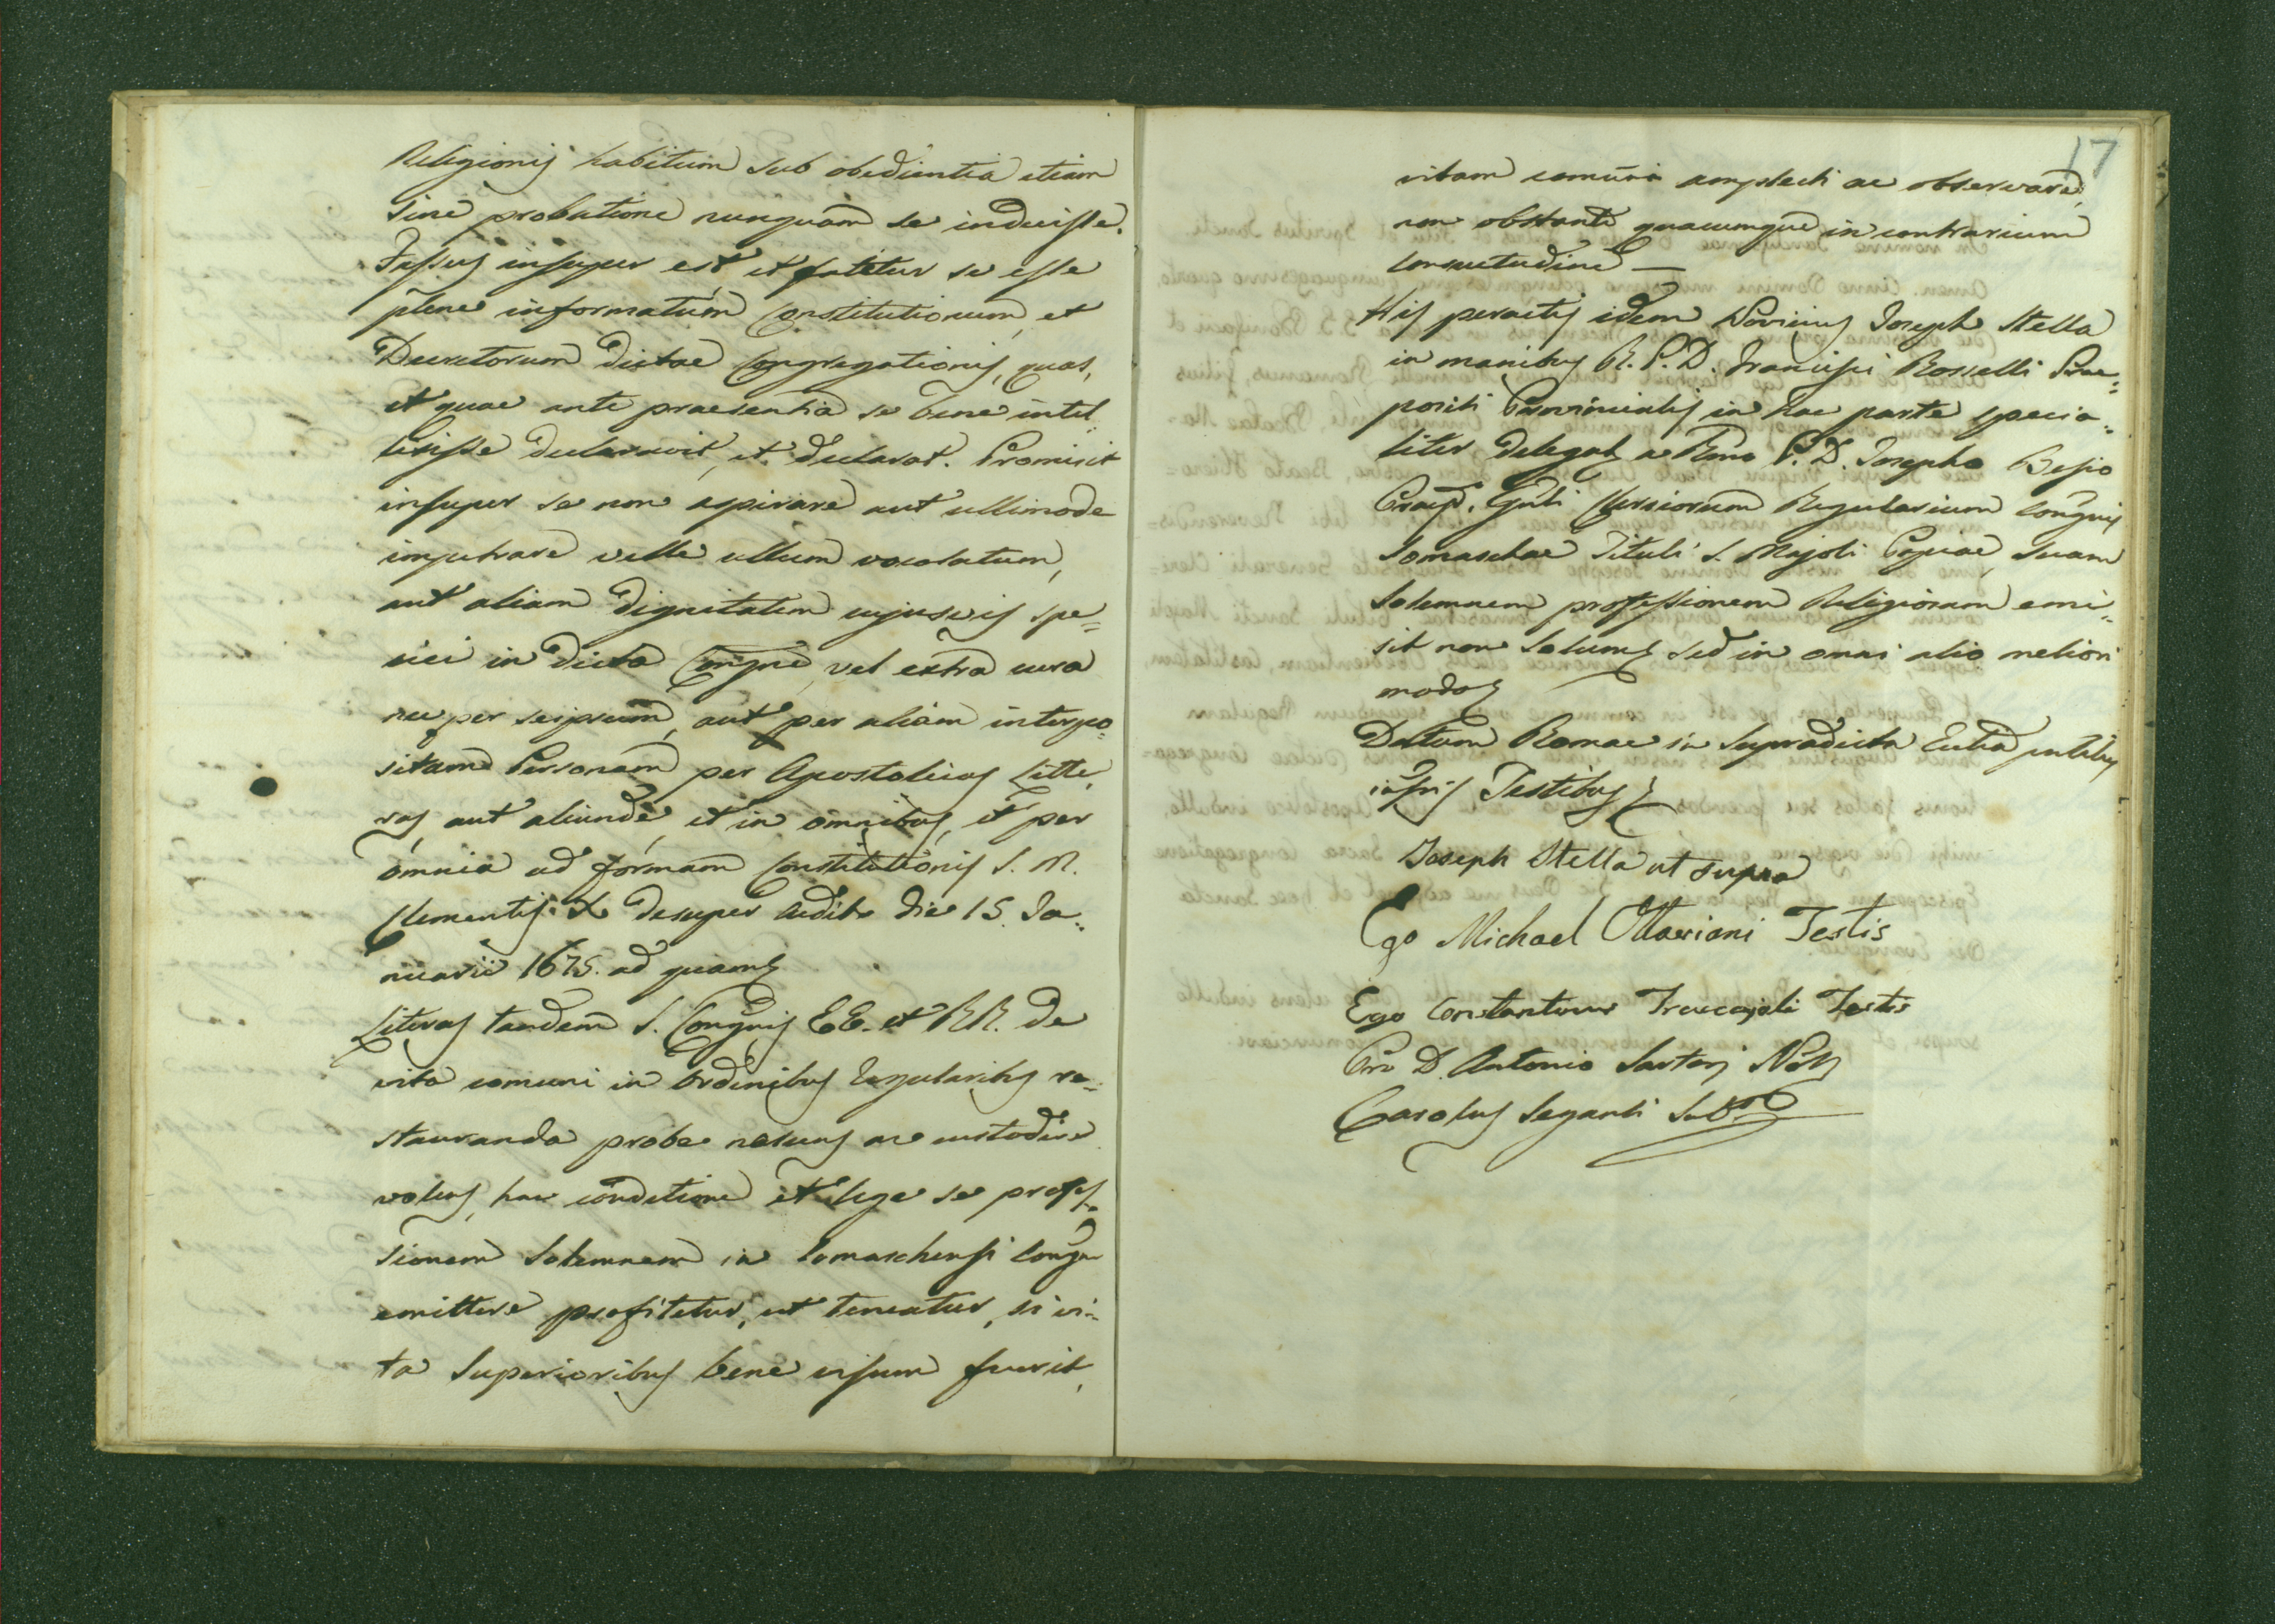 Religionis habitum sub obedientia etiam
sine probatione nunquam se induisse.
Fassus insuper est, et fatetur se esse
plene informatum Constitutionum, et
Decretorum dictae Congregationis, quas,
et quae ante praesentia se bene intel
lexisse declaravit, et declarat. Promisit
insuper se non aspirare aut ullimode
impetrare velle ullum vocalatum,
aut aliam dignitatem cujusvis spe=
ciei in dicta Congne, vel extra cura
nec per seipsum, aut per aliam interpo=
sitam Personam per Apostolicas Litte,
ras, aut aliunde, et in omnibus, et per
omnia ad formam Constitutionis S. M.
Clementis X desuper aedita die 15. Ja=
nuarii 1675. ad quam
Literas tandem S. Congnis EE. et RR. de
vita comuni in Ordinibus Regularibus re=
stauranda probe noscens ac custodire
volens, hac conditione et lege se profes=
sionem Solemnem in Somaschensi Congne
emittere profitetur, ut teneatur, si i=
ta Superioribus bene visum fuerit,
17
vitam comunem amplecti ac observare,
non obstante quacumque in contrarium
consuetudine —
His peractis idem Novitius Joseph Stella
in manibus R. P. D. Francisci Rosselli Prae=
positi Provincialis in hac parte specia=
liter Delegat a Rmo P. D. Josepho Besio
Praep. Gnli Clericorum Regularium Congnis
Somaschae Tituli S. Majoli Papiae, suam
Solemnem professionem Religiosam emi=
sit non solum sed in omni alio meliori
modo
Datum Romae in Supradicta Eccla pntibus
infris Testibus
Joseph Stella ut supra
Ego Michael Ottaviani Testis
Ego Constantinus Testis
Pro D. Antonio Sartorj Not
Carolus Seganti Subs